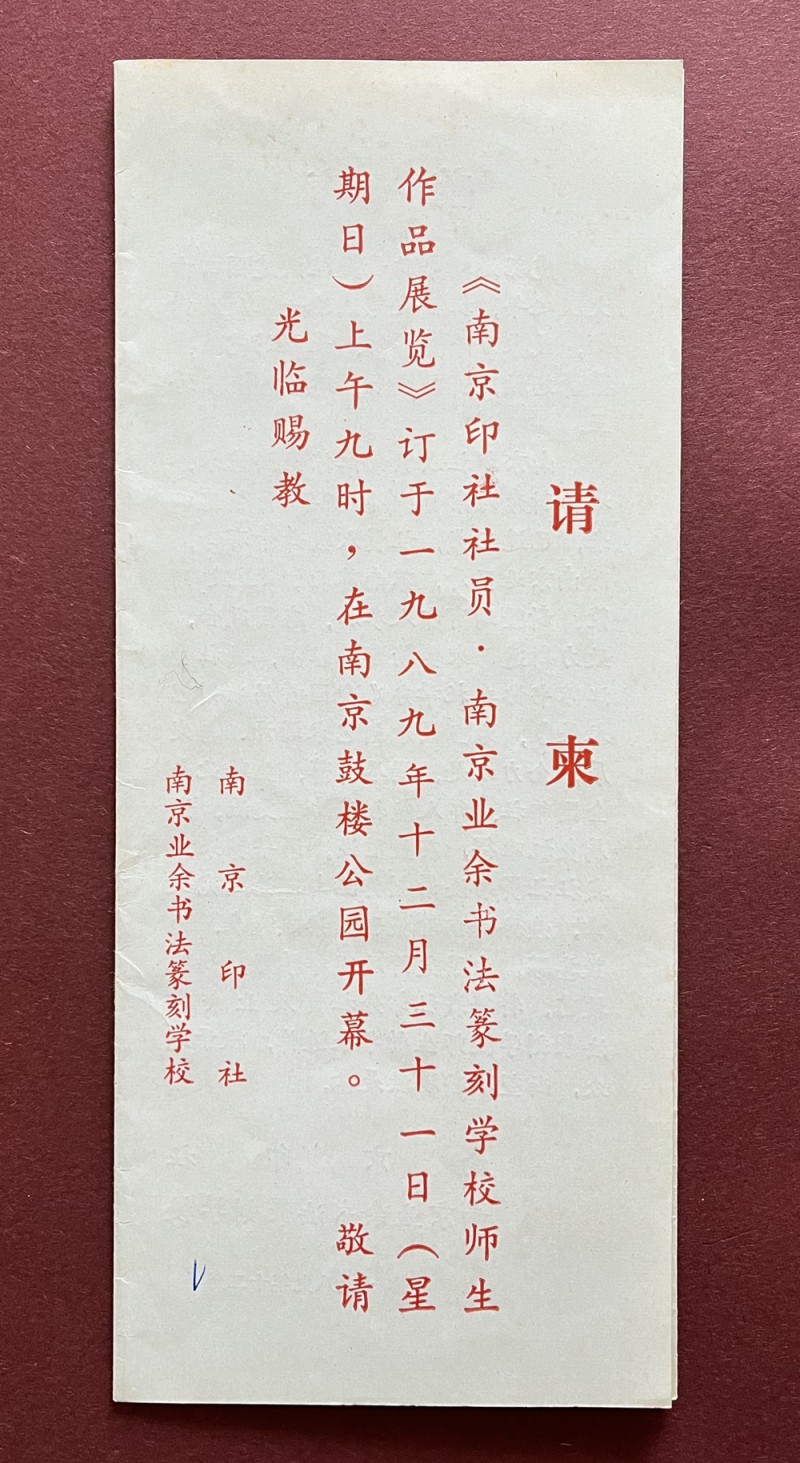 请柬
《南京印社社员·南京业余书法篆刻学校师生
作品展览》订于一九八九年十二月三十一日(星
期日)上午九时,在南京鼓楼公园开幕。 敬请
光临赐教
南京印社
南京业余书法篆刻学校